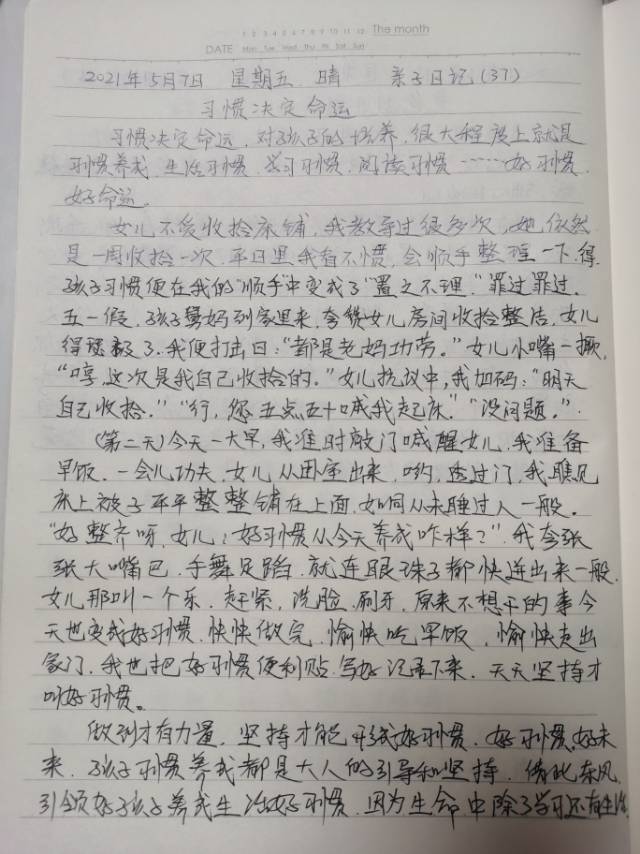 1 2 3 4 5 6 7 8 9 10 11 12 The month
DATE Mon Tue Wed Thu Fri Sat Sun
2021年5月7日 星期五 晴 亲子日记(37)
习惯决定命运
习惯决定命运,对孩子的培养,很大程度上就是
习惯养成 生活习惯.学习习惯.阅读习惯……好习惯.
好命运.
女儿不爱收拾床铺,我教导过很多次,她依然
是一周收拾一次,平日里我看不惯,会顺手整理一下,得.
孩子习惯便在我的"顺手"中变成了"置之不理."罪过罪过.
五一假,孩子舅妈到家里来,夸赞女儿房间收拾整洁,女儿
得瑟极了.我便打击曰:"都是老妈功劳。"女儿小嘴一撅,
"哼,这次是我自己收拾的."女儿抗议中,我加码:"明天
自己收拾."“行,您五点五十喊我起床."“没问题.".
(第二天)今天一大早,我准时敲门喊醒女儿,我准备
早饭.一会儿功夫,女儿从卧室出来,哟,透过门,我瞧见
床上被子平平整整铺在上面,如同从未睡过人一般。
"好整齐呀,女儿;好习惯从今天养成咋样?"我夸张
张大嘴巴.手舞足蹈.就连眼珠子都快迸出来一般.
女儿那叫一个乐.赶紧,洗脸.刷牙,原来不想干的事今
天也变成好习惯,快快做完,愉快吃早饭,愉快走出
家门,我也把好习惯便利贴写好记录下来.天天坚持才
叫好习惯。
做到才有力量,坚持才能形成好习惯.好习惯,好未
来.孩子习惯养成都是大人的引导和坚持.借此东风,
引领好孩子养成生活好习惯,因为生命中除了学习还有生活